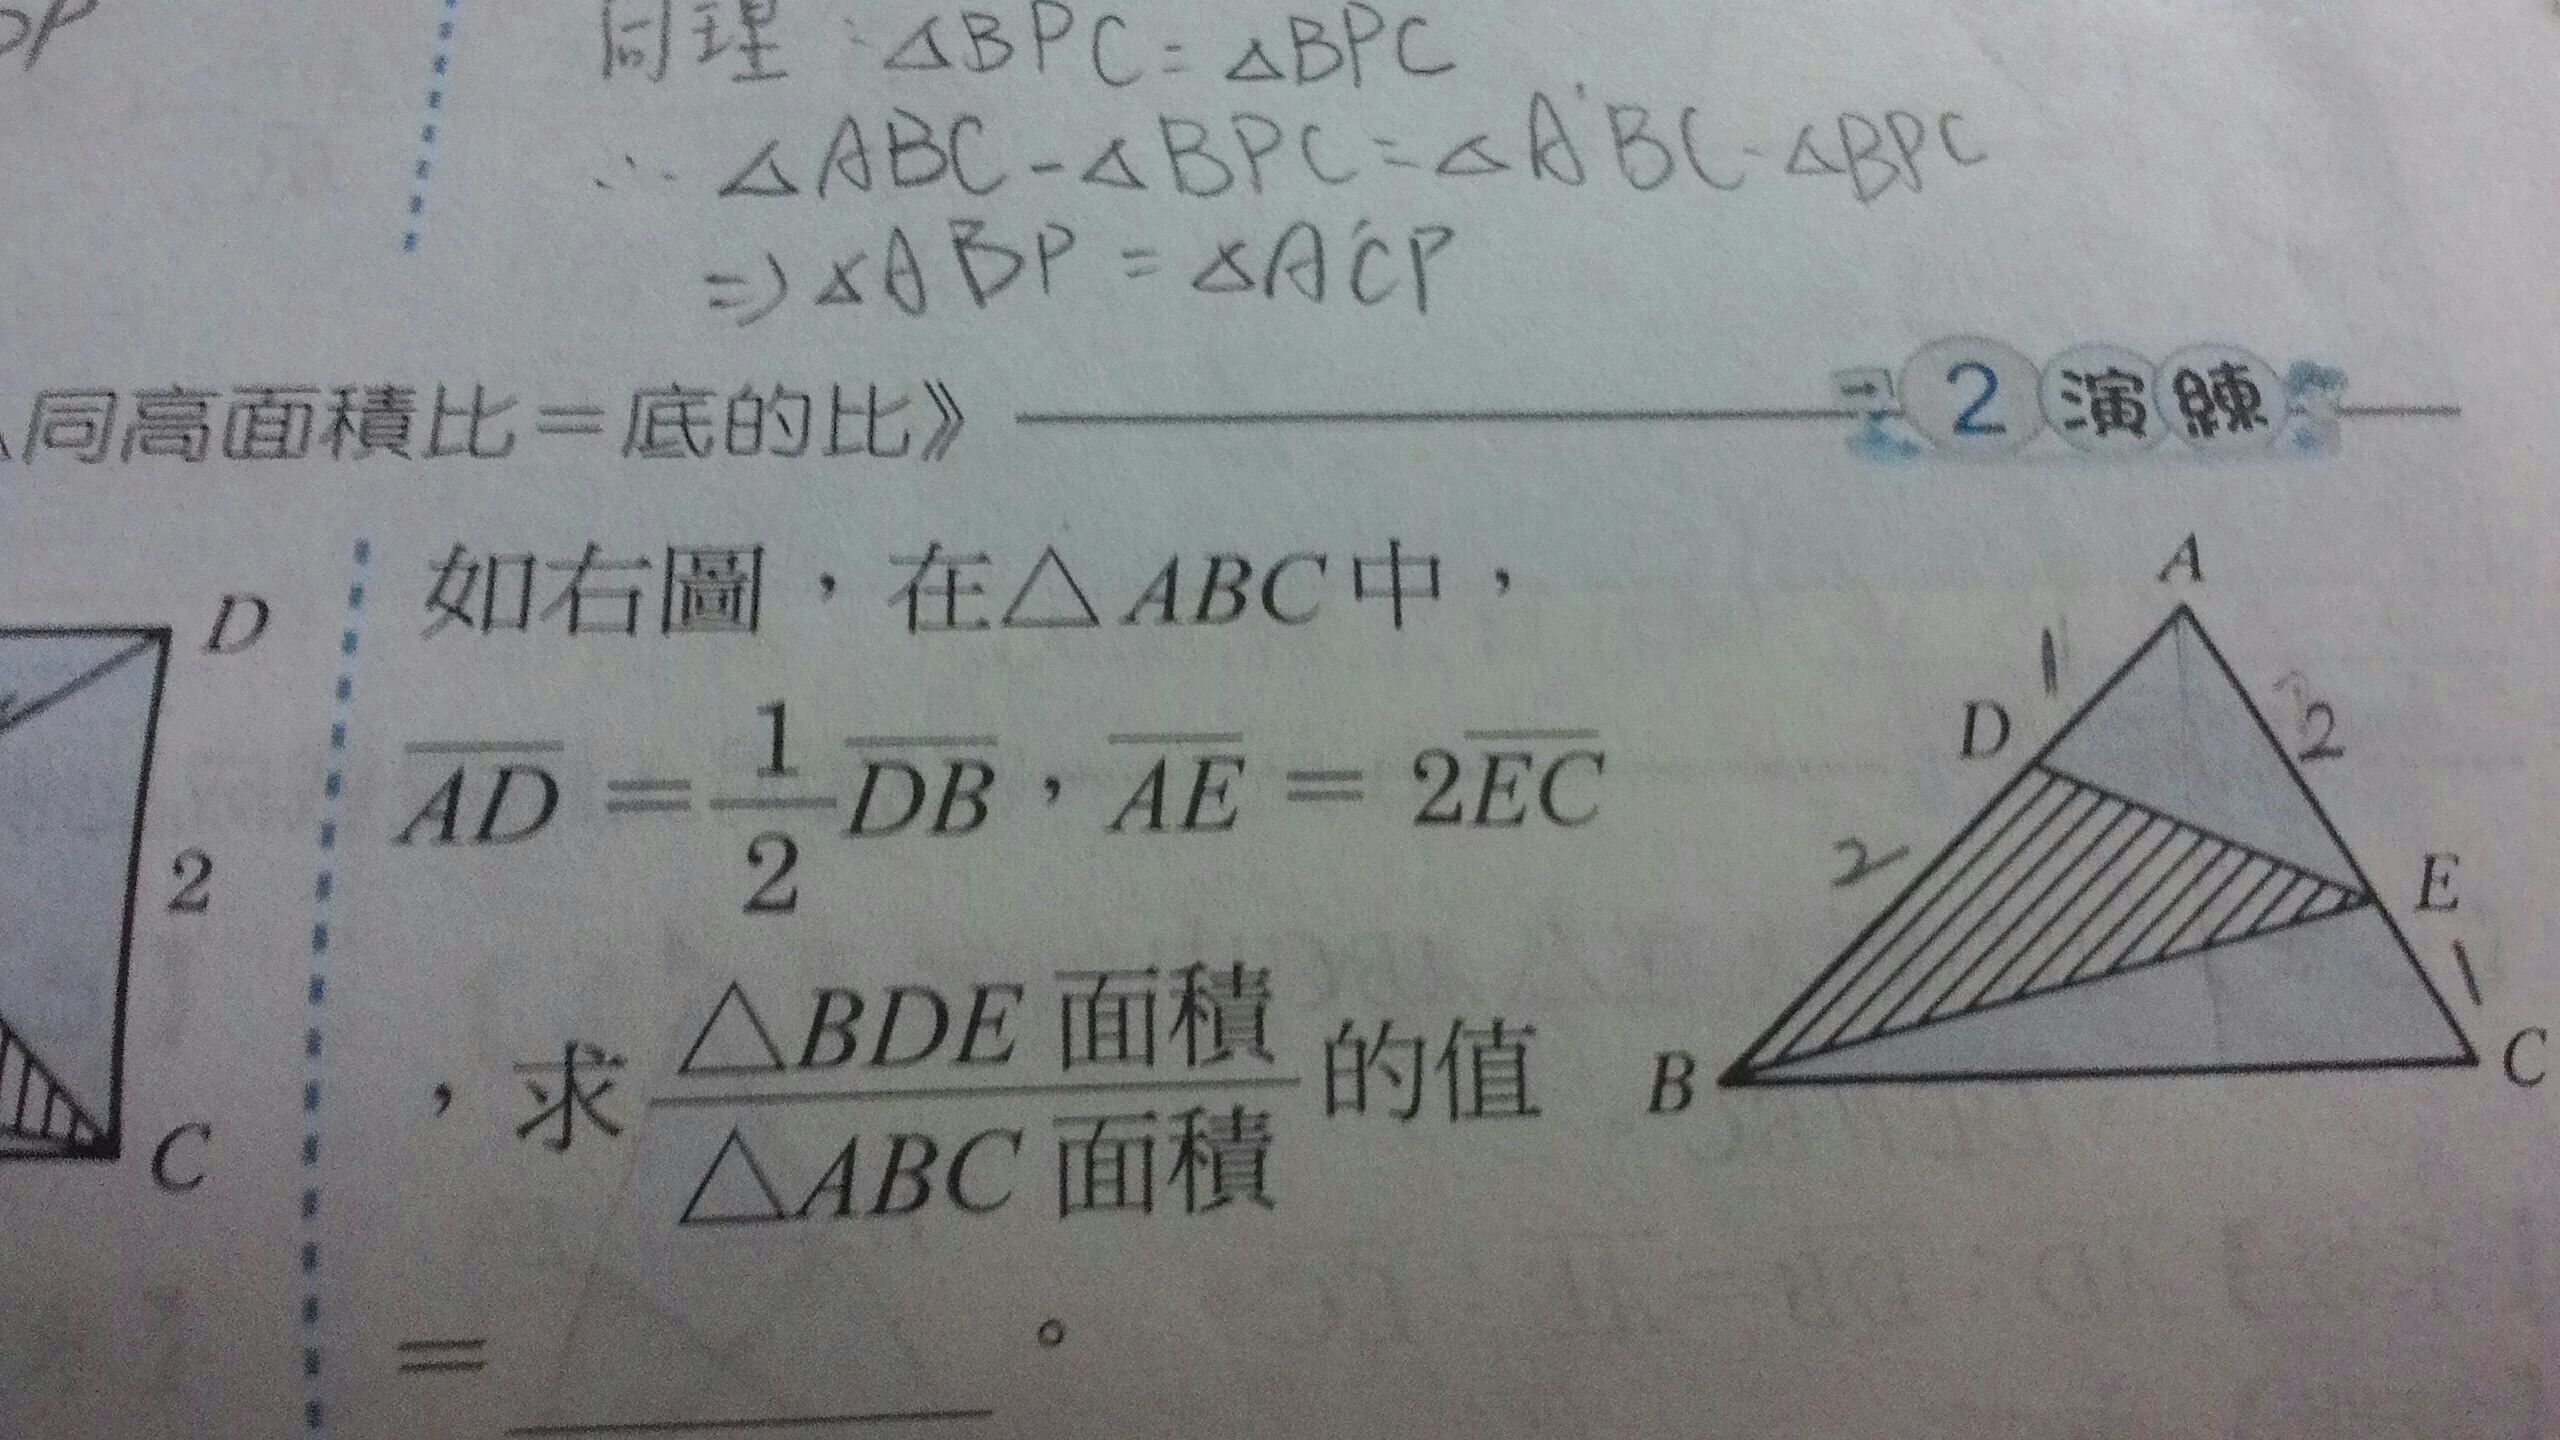 同理：△BPC=△BPC
∴ △ABC-△BPC=△A'BC-△BPC
=> △ABP = △A'CP
同高面積比＝底的比》
2 演練
如右圖，在△ABC中，
AD = 1/2 DB，AE = 2EC
，求 △BDE 面積 / △ABC 面積 的值
= ______。
A
1
D
2
2
E
1
B
C
D
2
C